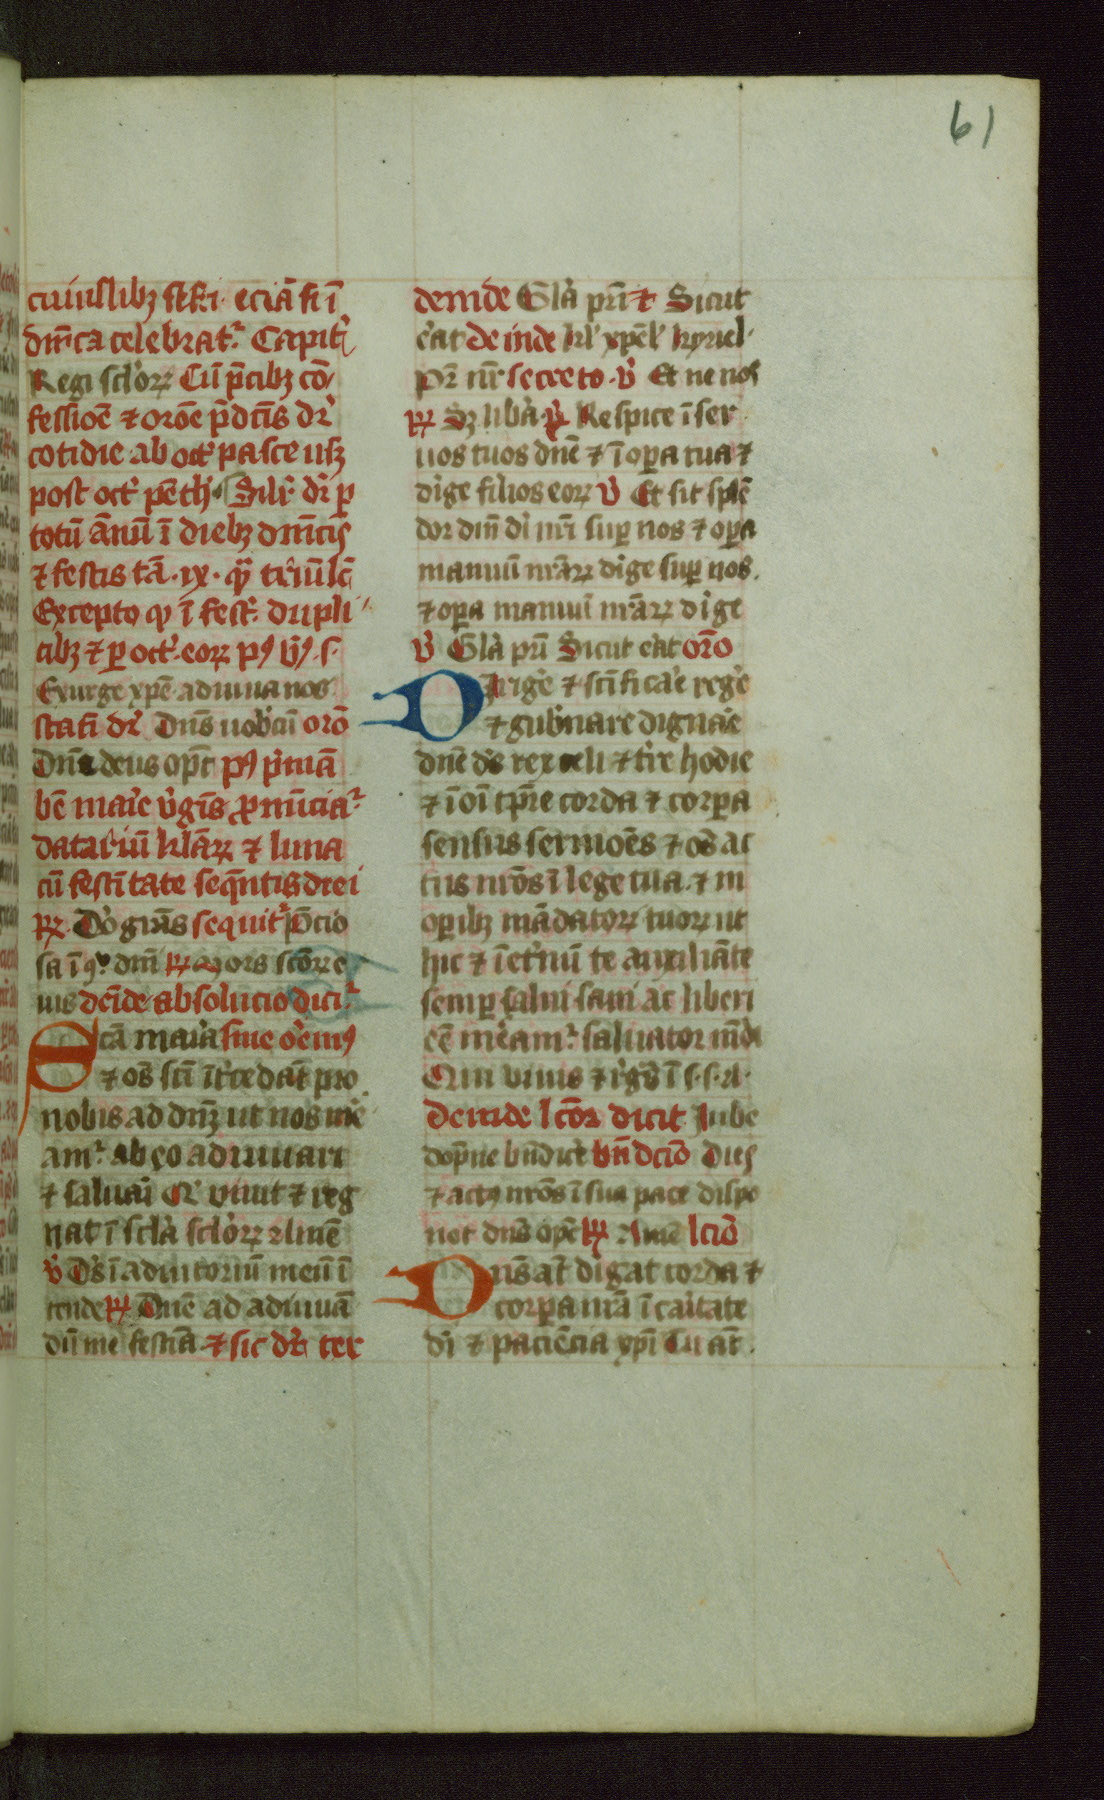 61
cuiuslibꝫ sc̄i. eciā si ī
dn̄ica celebrat᷑. Capit̄
Regi scl̓oꝝ Cū p̄cibꝫ cō
fessiōe ⁊ orōe p̄dc̄is dr̄
cotidie ab oct̄ pasce usꝫ
post oct̄ pēth̓. Sil̓r dr̄ ꝑ
totū ānū ī diebꝫ dn̄icis
⁊ festis tā .ix. qͣ triū lc̄
Excepto ꝙ ī fest̓. dupli
cibꝫ ⁊ ꝑ oct̓. eoꝝ pꝰ v̄ꝰ. s.
Exurge xp̄e adiuua nos
statī dr̄ Dn̄s uob̓cū orō
Dn̄e deus op̄t̄ pꝰ p̓mā
bē mar̓e v̓gīs ꝓnūcia᷑
datariū kl̄aꝝ ⁊ luna
cū festītate seqn̄tis diei
℟. Dō gr̄as sequit᷑ p̄cio
sa ī ꝯͦ. dn̄i ℟ mors sc̄oꝝ e
uis deīde absolucio dici᷑
Scā mar̓a siue oēmꝰ
⁊ oēs sc̄i īt̓cedāt pro
nobis ad dn̄ꝫ ut nos me
am᷑. ab eo adiuuari
⁊ saluari Qͥ viuit ⁊ reg
nat ī scl̓a scl̓oꝝ amē
℣ Ds̄ ī adiutoriū meū ī
tende ℟ Dn̄e ad adiuuā
dū me festīa ⁊ sic dr̄ ter
deinde Gl̓a pr̄i ⁊ Sicut
e̓at deinde krl̓ xp̄el̓ kyriel̓.
Pr̄ nr̄ secreto. ℣ Et ne nos
℟ Sꝫ lib̓a ℣ Respice ī ser
uos tuos dn̄e ⁊ ī oꝑa tua ⁊
dige filios eoꝝ ℣ Et sit splē
dor dn̄i di nr̄i suꝑ nos ⁊ oꝑa
manuū nr̄aꝝ dige suꝑ nos.
⁊ oꝑa manuū nr̄aꝝ dige
℣ Gl̓a pr̄i Sicut e̓at orō
Dirige̓ ⁊ scīfica̓e rege̓
⁊ gub̓nare dignar̓e
dn̄e ds̄ rex celi ⁊ tr̓e hodie
⁊ ī oī tp̄re corda ⁊ corꝑa
sensus sermōēs ⁊ oēs ac
tus nr̄os ī lege tua ⁊ in
oꝑibꝫ mādatoꝝ tuoꝝ ut
hic ⁊ ī et̓nū te auxiliāte
semꝑ salui sani ac liberi
eē me̓am᷑. saluator mūdi
Qui viuis ⁊ r̓g̓s ī s. s. a.
Deinde lc̄or dicit Jube
dop̄ne bn̄dic̓e bn̄dcīo Dies
⁊ actꝰ nr̄os ī sua pace dispo
not dn̄s op̄s ℟ Amē lcīo
Dn̄s aūt digat corda ⁊
corꝑa nr̄a ī car̓tate
di ⁊ paciēcia xp̄i Tu aūt.